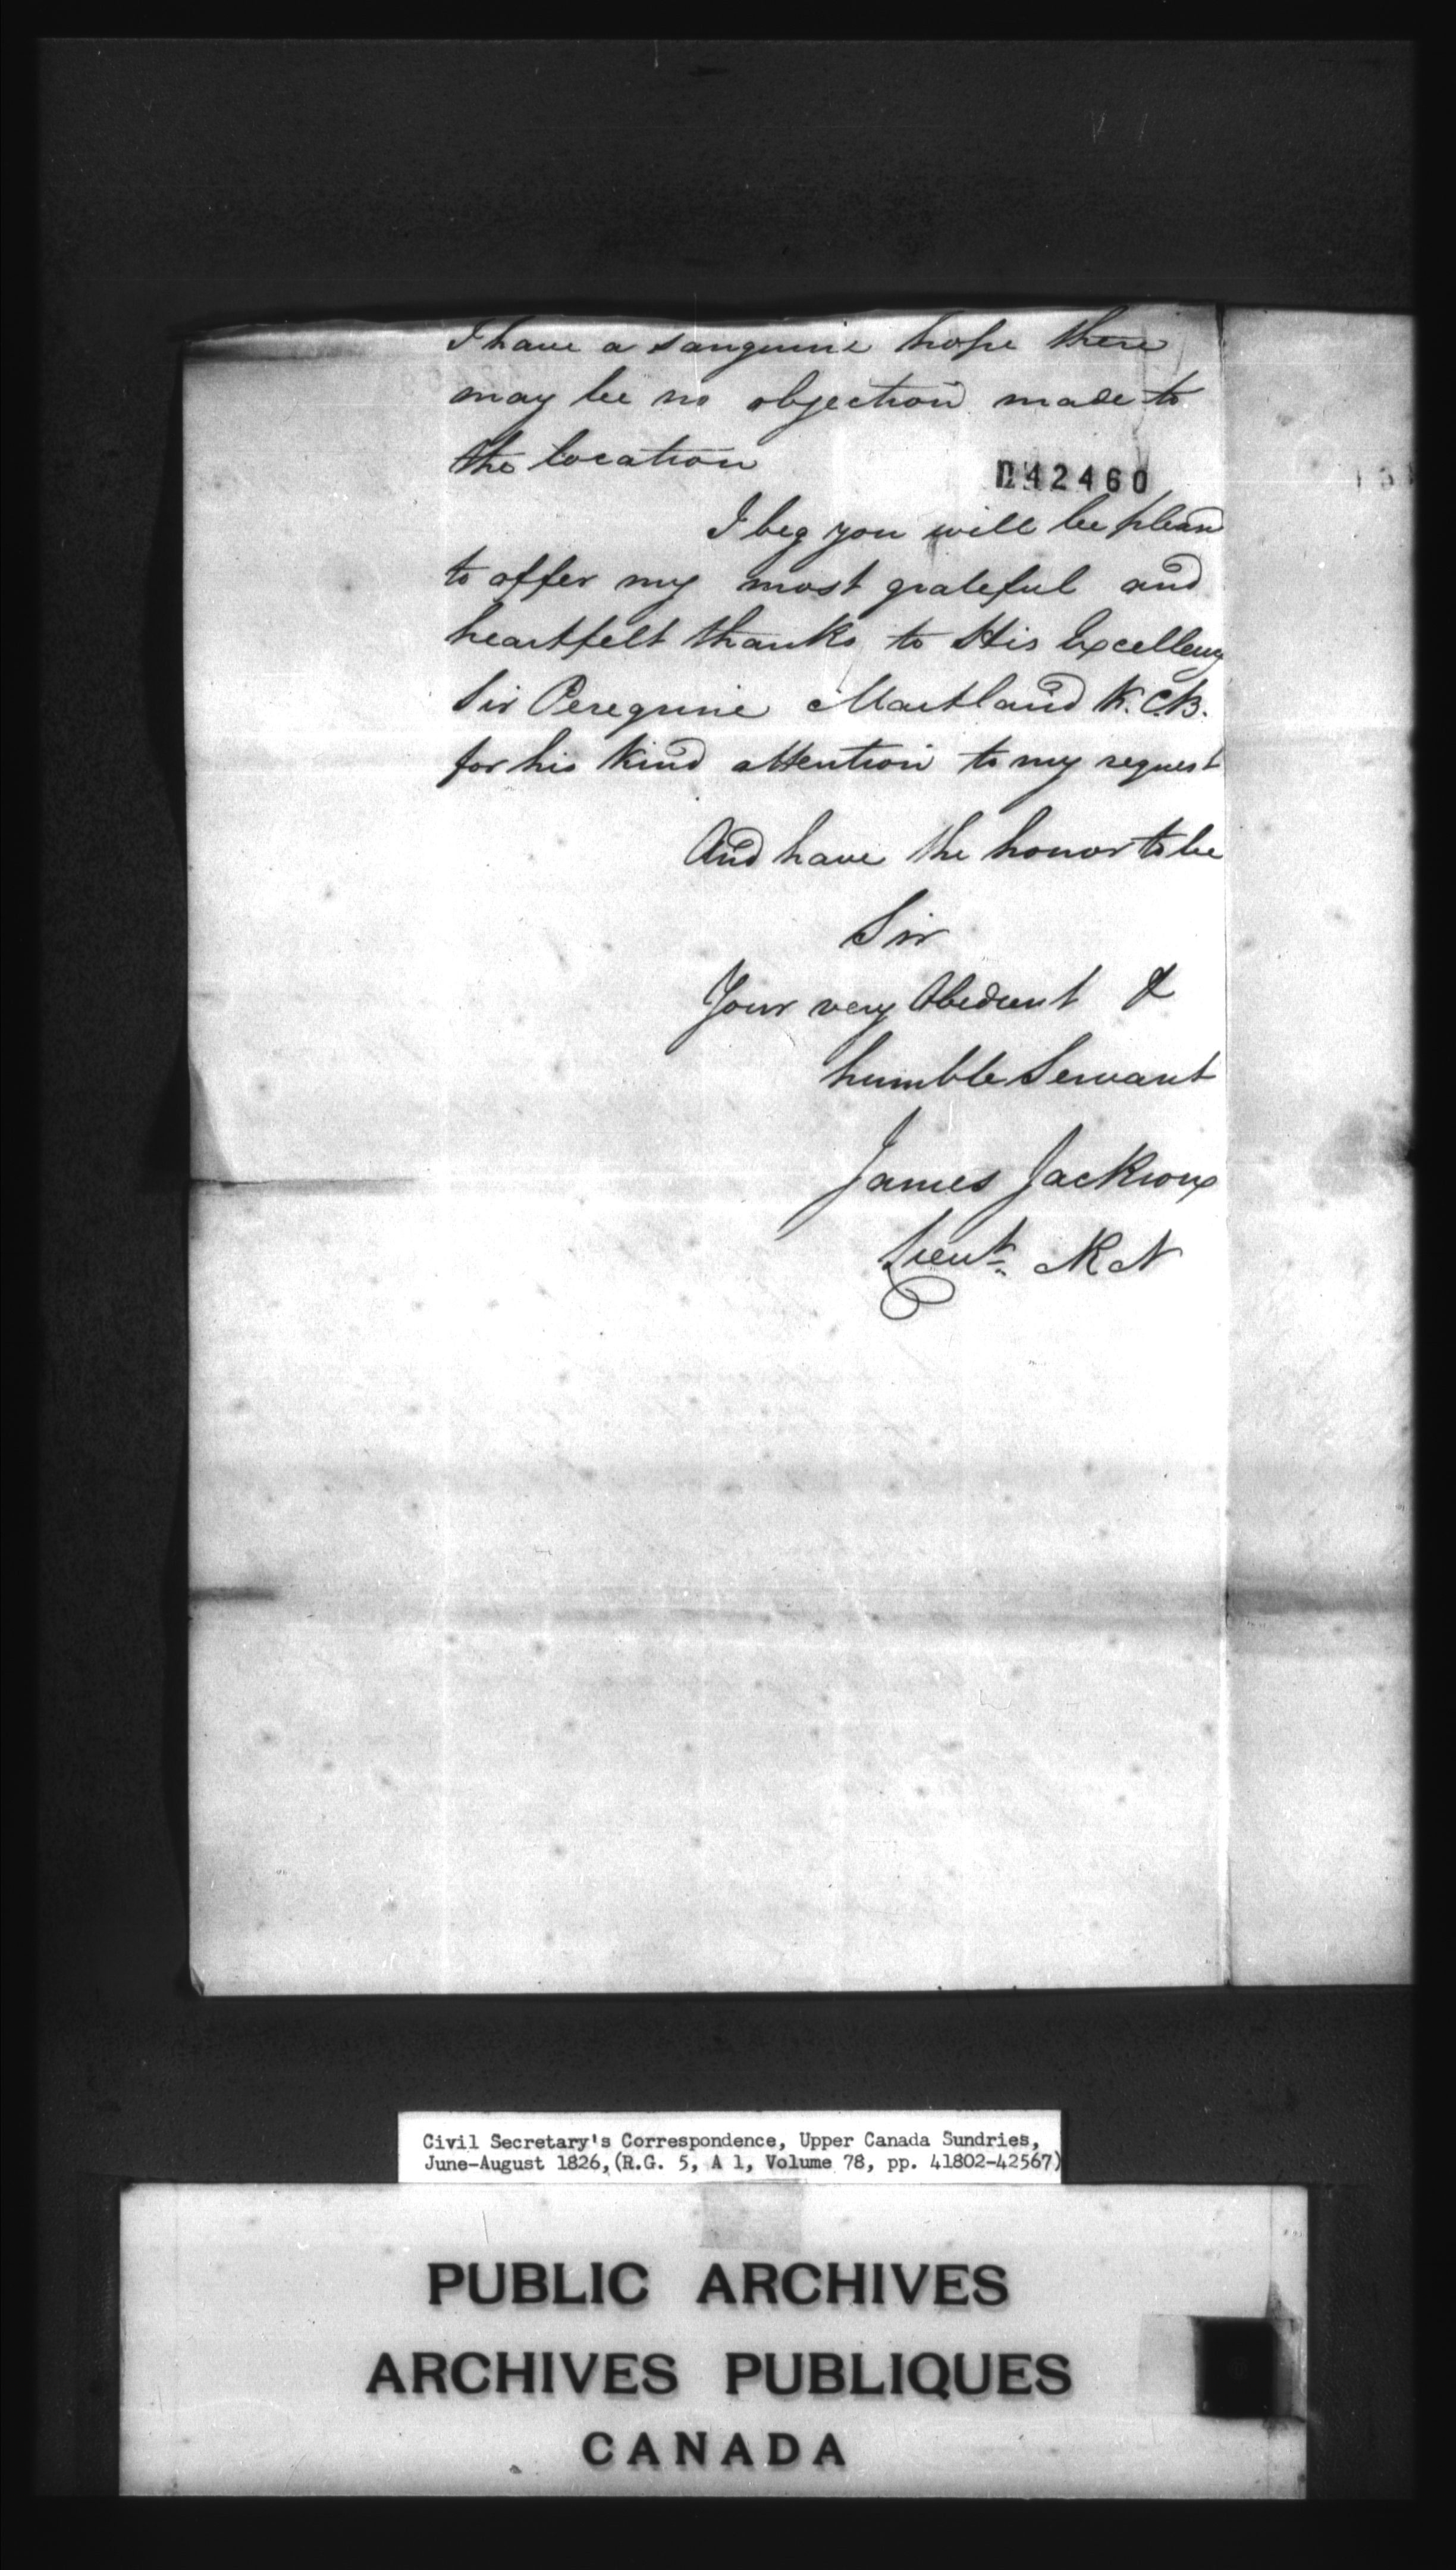 I have a sanguine hope there
may be no objection made to
the location
42460
I beg you will be pleasd
to offer my most grateful and
heartfelt thanks to His Excellency
Sir Peregrine Maitland K.C.B.
for his kind attention to my request
And have the honor to be
Sir
Your very Obedient &
humble Servant
James Jackson
Lieut. RN
Civil Secretary's Correspondence, Upper Canada Sundries,
June-August 1826, (R.G. 5, A 1, Volume 78, pp. 41802-42567)
PUBLIC ARCHIVES
ARCHIVES PUBLIQUES
CANADA